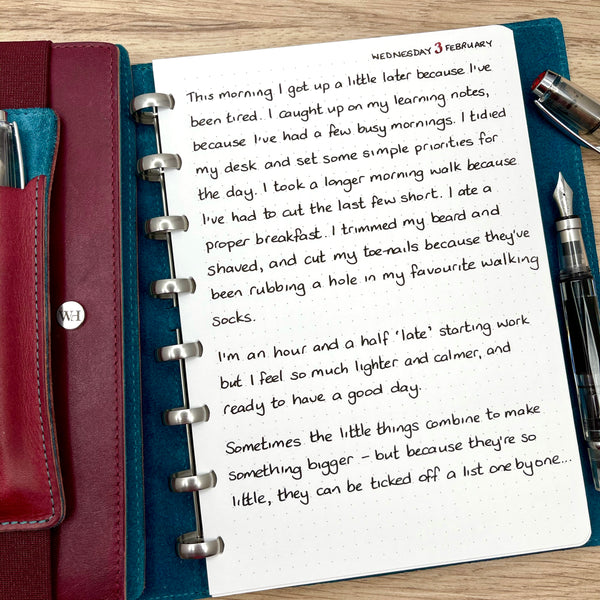 WEDNESDAY 3 FEBRUARY
This morning I got up a little later because I've
been tired. I caught up on my learning notes,
because I've had a few busy mornings. I tidied
my desk and set some simple priorities for
the day. I took a longer morning walk because
I've had to cut the last few short. I ate a
proper breakfast. I trimmed my beard and
shaved, and cut my toe-nails because they've
been rubbing a hole in my favourite walking
socks.
I'm an hour and a half 'late' starting work
but I feel so much lighter and calmer, and
ready to have a good day.
Sometimes the little things combine to make
something bigger – but because they're so
little, they can be ticked off a list one by one...
WH